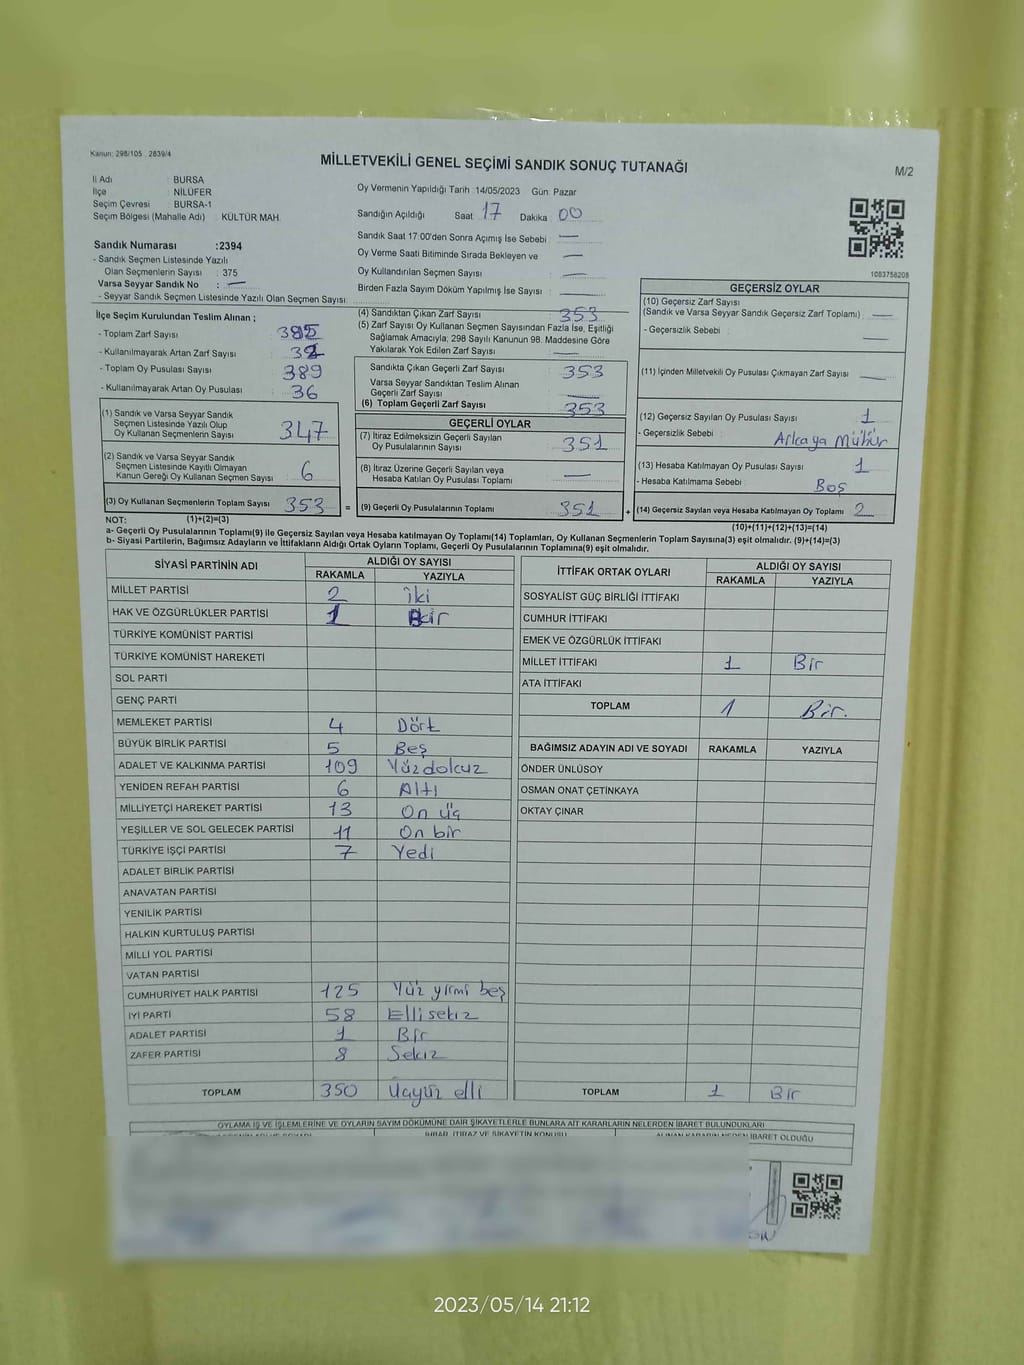 Kanun: 298/105 2839/4
MİLLETVEKİLİ GENEL SEÇİMİ SANDIK SONUÇ TUTANAĞI
M/2
İl Adı : BURSA
İlçe : NİLÜFER
Seçim Çevresi : BURSA-1
Seçim Bölgesi (Mahalle Adı) : KÜLTÜR MAH.
Oy Vermenin Yapıldığı Tarih :14/05/2023 Gün: Pazar
Sandığın Açıldığı Saat 17 Dakika 00
Sandık Saat 17:00'den Sonra Açımış İse Sebebi —
Oy Verme Saati Bitiminde Sırada Bekleyen ve —
Oy Kullandırılan Seçmen Sayısı : —
Birden Fazla Sayım Döküm Yapılmış İse Sayısı : —
1083758208
Sandık Numarası :2394
- Sandık Seçmen Listesinde Yazılı
Olan Seçmenlerin Sayısı : 375
Varsa Seyyar Sandık No : —
- Seyyar Sandık Seçmen Listesinde Yazılı Olan Seçmen Sayısı:
İlçe Seçim Kurulundan Teslim Alınan ;
- Toplam Zarf Sayısı : 385
- Kullanılmayarak Artan Zarf Sayısı : 32
- Toplam Oy Pusulası Sayısı : 389
- Kullanılmayarak Artan Oy Pusulası : 36
(1) Sandık ve Varsa Seyyar Sandık
Seçmen Listesinde Yazılı Olup
Oy Kullanan Seçmenlerin Sayısı : 347
(2) Sandık ve Varsa Seyyar Sandık
Seçmen Listesinde Kayıtlı Olmayan
Kanun Gereği Oy Kullanan Seçmen Sayısı : 6
(3) Oy Kullanan Seçmenlerin Toplam Sayısı : 353 =
(4) Sandıktan Çıkan Zarf Sayısı : 353
(5) Zarf Sayısı Oy Kullanan Seçmen Sayısından Fazla İse, Eşitliği
Sağlamak Amacıyla, 298 Sayılı Kanunun 98. Maddesine Göre
Yakılarak Yok Edilen Zarf Sayısı : —
Sandıkta Çıkan Geçerli Zarf Sayısı : 353
Varsa Seyyar Sandıktan Teslim Alınan
Geçerli Zarf Sayısı : —
(6) Toplam Geçerli Zarf Sayısı : 353
GEÇERLİ OYLAR
(7) İtiraz Edilmeksizin Geçerli Sayılan
Oy Pusulalarının Sayısı : 351
(8) İtiraz Üzerine Geçerli Sayılan veya
Hesaba Katılan Oy Pusulası Toplamı : —
(9) Geçerli Oy Pusulalarının Toplamı : 351 +
GEÇERSİZ OYLAR
(10) Geçersiz Zarf Sayısı
(Sandık ve Varsa Seyyar Sandık Geçersiz Zarf Toplamı) : —
- Geçersizlik Sebebi : —
(11) İçinden Milletvekili Oy Pusulası Çıkmayan Zarf Sayısı : —
(12) Geçersiz Sayılan Oy Pusulası Sayısı : 1
- Geçersizlik Sebebi : Arkaya Mühür
(13) Hesaba Katılmayan Oy Pusulası Sayısı : 1
- Hesaba Katılmama Sebebi : Boş
(14) Geçersiz Sayılan veya Hesaba Katılmayan Oy Toplamı : 2
NOT: (1)+(2)=(3)
(10)+(11)+(12)+(13)=(14)
a- Geçerli Oy Pusulalarının Toplamı(9) ile Geçersiz Sayılan veya Hesaba katılmayan Oy Toplamı(14) Toplamları, Oy Kullanan Seçmenlerin Toplam Sayısına(3) eşit olmalıdır. (9)+(14)=(3)
b- Siyasi Partilerin, Bağımsız Adayların ve İttifakların Aldığı Ortak Oyların Toplamı, Geçerli Oy Pusulalarının Toplamına(9) eşit olmalıdır.
SİYASİ PARTİNİN ADI ALDIĞI OY SAYISI
RAKAMLA YAZIYLA
MİLLET PARTİSİ 2 iki
HAK VE ÖZGÜRLÜKLER PARTİSİ 1 Bir
TÜRKİYE KOMÜNİST PARTİSİ
TÜRKİYE KOMÜNİST HAREKETİ
SOL PARTİ
GENÇ PARTİ
MEMLEKET PARTİSİ 4 Dört
BÜYÜK BİRLİK PARTİSİ 5 Beş
ADALET VE KALKINMA PARTİSİ 109 Yüzdokuz
YENİDEN REFAH PARTİSİ 6 Altı
MİLLİYETÇİ HAREKET PARTİSİ 13 On üç
YEŞİLLER VE SOL GELECEK PARTİSİ 11 On bir
TÜRKİYE İŞÇİ PARTİSİ 7 Yedi
ADALET BİRLİK PARTİSİ
ANAVATAN PARTİSİ
YENİLİK PARTİSİ
HALKIN KURTULUŞ PARTİSİ
MİLLİ YOL PARTİSİ
VATAN PARTİSİ
CUMHURİYET HALK PARTİSİ 125 Yüz yirmi beş
İYİ PARTİ 58 Elli sekiz
ADALET PARTİSİ 1 Bir
ZAFER PARTİSİ 8 Sekiz
TOPLAM 350 Üçyüz elli
İTTİFAK ORTAK OYLARI ALDIĞI OY SAYISI
RAKAMLA YAZIYLA
SOSYALİST GÜÇ BİRLİĞİ İTTİFAKI
CUMHUR İTTİFAKI
EMEK VE ÖZGÜRLÜK İTTİFAKI
MİLLET İTTİFAKI 1 Bir
ATA İTTİFAKI
TOPLAM 1 Bir.
BAĞIMSIZ ADAYIN ADI VE SOYADI RAKAMLA YAZIYLA
ÖNDER ÜNLÜSOY
OSMAN ONAT ÇETİNKAYA
OKTAY ÇINAR
TOPLAM 1 Bir
OYLAMA İŞ VE İŞLEMLERİNE VE OYLARIN SAYIM DÖKÜMÜNE DAİR ŞİKAYETLERLE BUNLARA AİT KARARLARIN NELERDEN İBARET BULUNDUKLARI
İHBAR, İTİRAZ VE ŞİKAYETİN KONUSU
İBARET OLDUĞU
2023/05/14 21:12